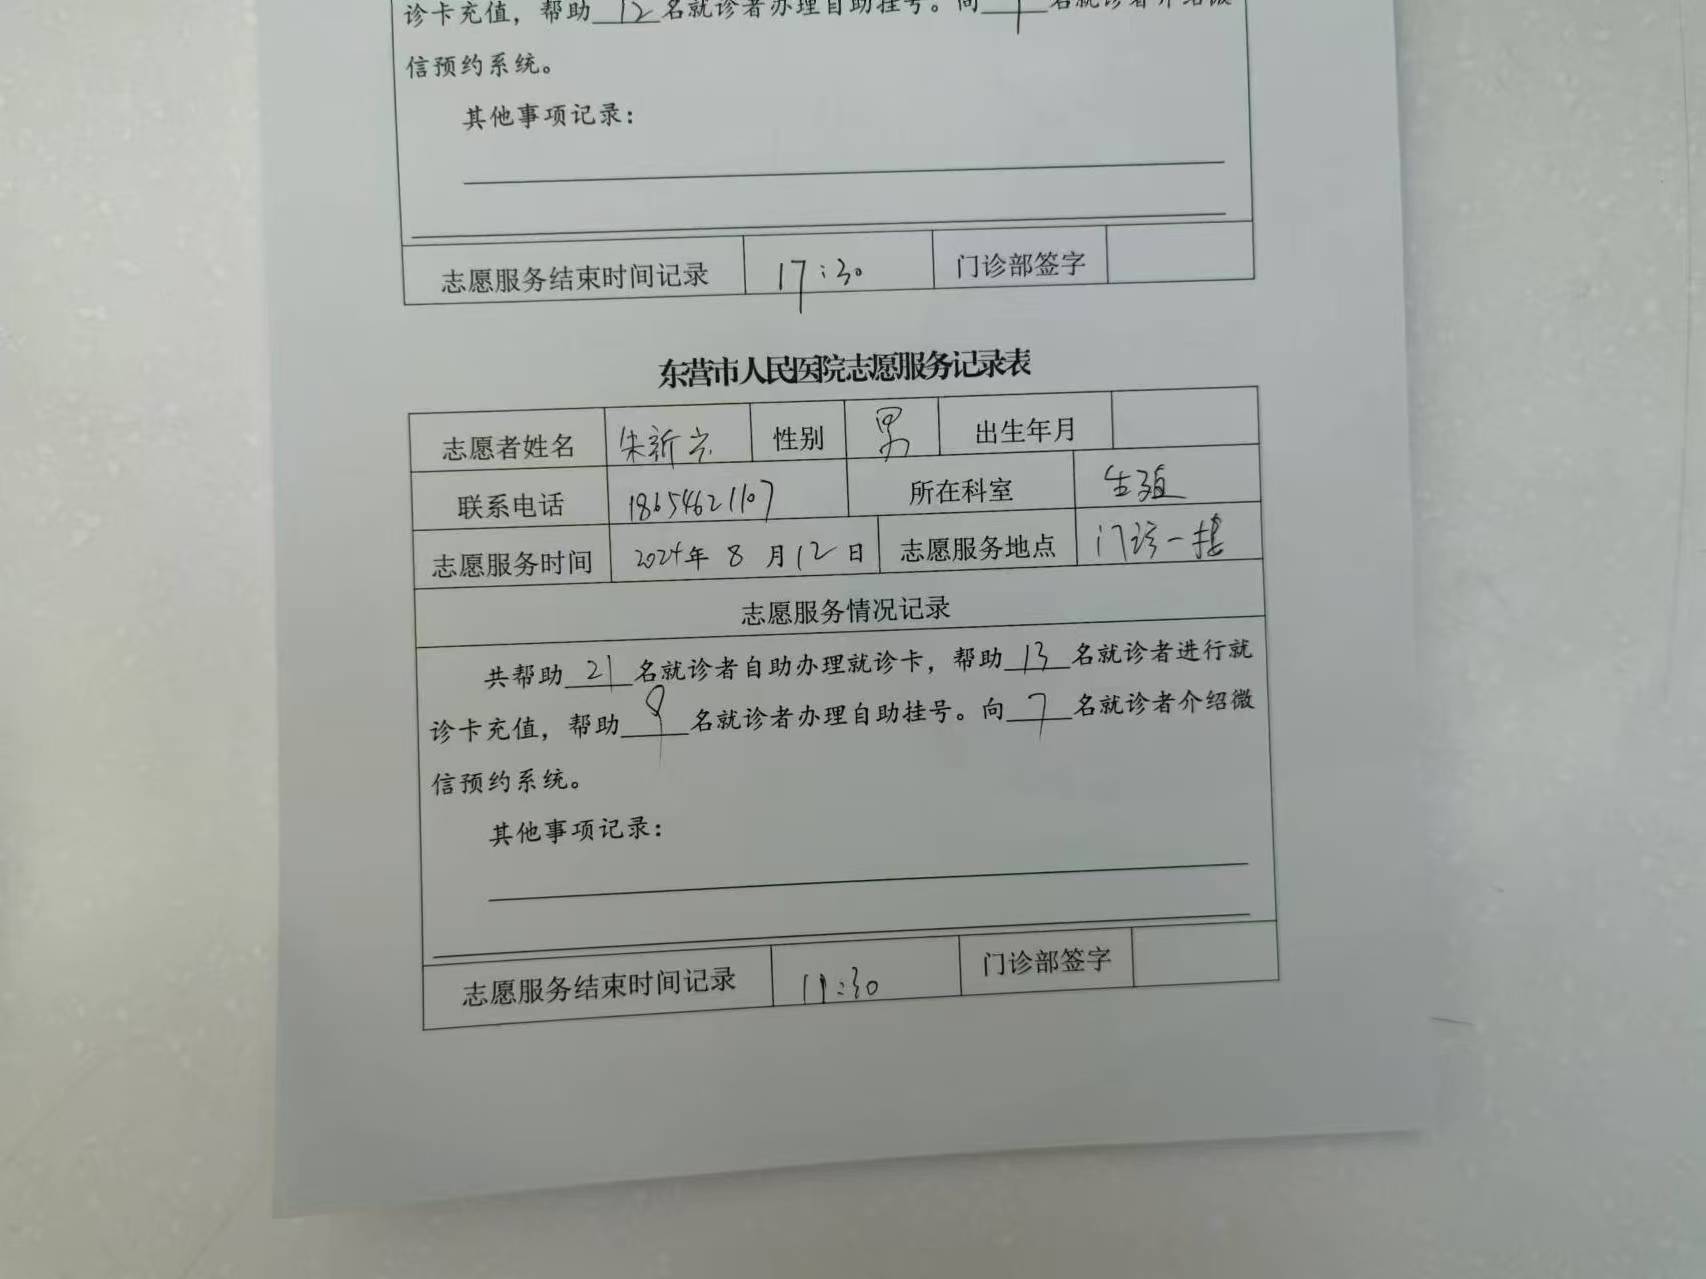 诊卡充值，帮助 12 名就诊者办理自助挂号。向 7 名就诊者介绍微
信预约系统。
其他事项记录：
志愿服务结束时间记录 17:30 门诊部签字
东营市人民医院志愿服务记录表
志愿者姓名 朱新 性别 男 出生年月
联系电话 18654621107 所在科室 生殖
志愿服务时间 2024年 8 月 12 日 志愿服务地点 门诊一楼
志愿服务情况记录
共帮助 21 名就诊者自助办理就诊卡，帮助 13 名就诊者进行就
诊卡充值，帮助 9 名就诊者办理自助挂号。向 7 名就诊者介绍微
信预约系统。
其他事项记录：
志愿服务结束时间记录 11:30 门诊部签字